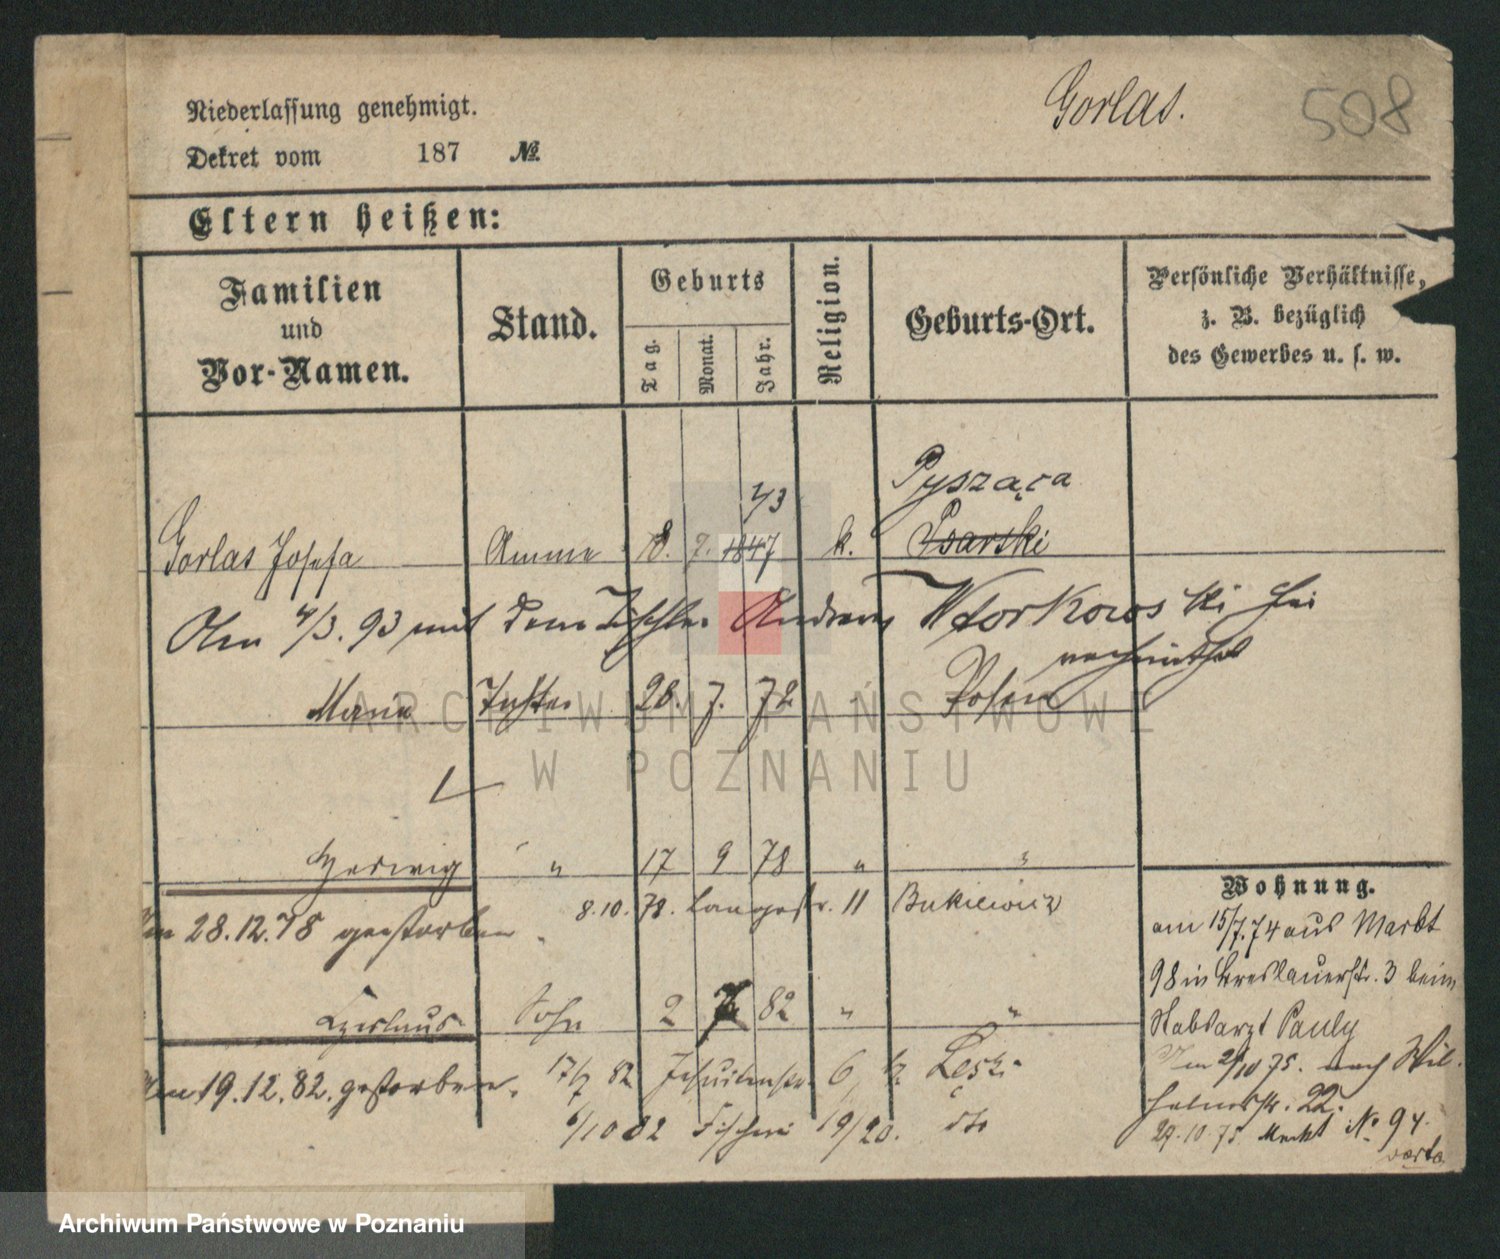 Niederlassung genehmigt.
Gorlas.
508
Dekret vom 187 №
Eltern heißen:
Familien und Vor-Namen.
Stand.
Geburts
Tag.
Monat.
Jahr.
Religion.
Geburts-Ort.
Persönliche Verhältnisse,
z. B. bezüglich
des Gewerbes u. s. w.
43
Pysząca
Gorlas Josefa Amme 8. 7. 1847 k. Psarski
Am 4/3. 93 mit dem Tischler Andreas Wtorkowski hier
verheirathet
Maria Tochter 28. 7. 72 " Posen
Hedwig " 17 9 78 " "
8.10.78. Langestr. 11 Bukiewicz
Am 28.12.78 gestorben.
Sohn 2 82 " "
17/7 82 Jesuitenstr. 6,
Am 19.12.82. gestorben.
6/10 82 Fischerei 19/20. dto
Wohnung.
am 15/7.74 aus Markt
98 in Breslauerstr. 3 beim
Stabsarzt Pauly
Am 75. nach Wil-
helmstr. 22.
29.10.75 Markt No 94.
verte
ARCHIWUM PAŃSTWOWE
W POZNANIU
Archiwum Państwowe w Poznaniu